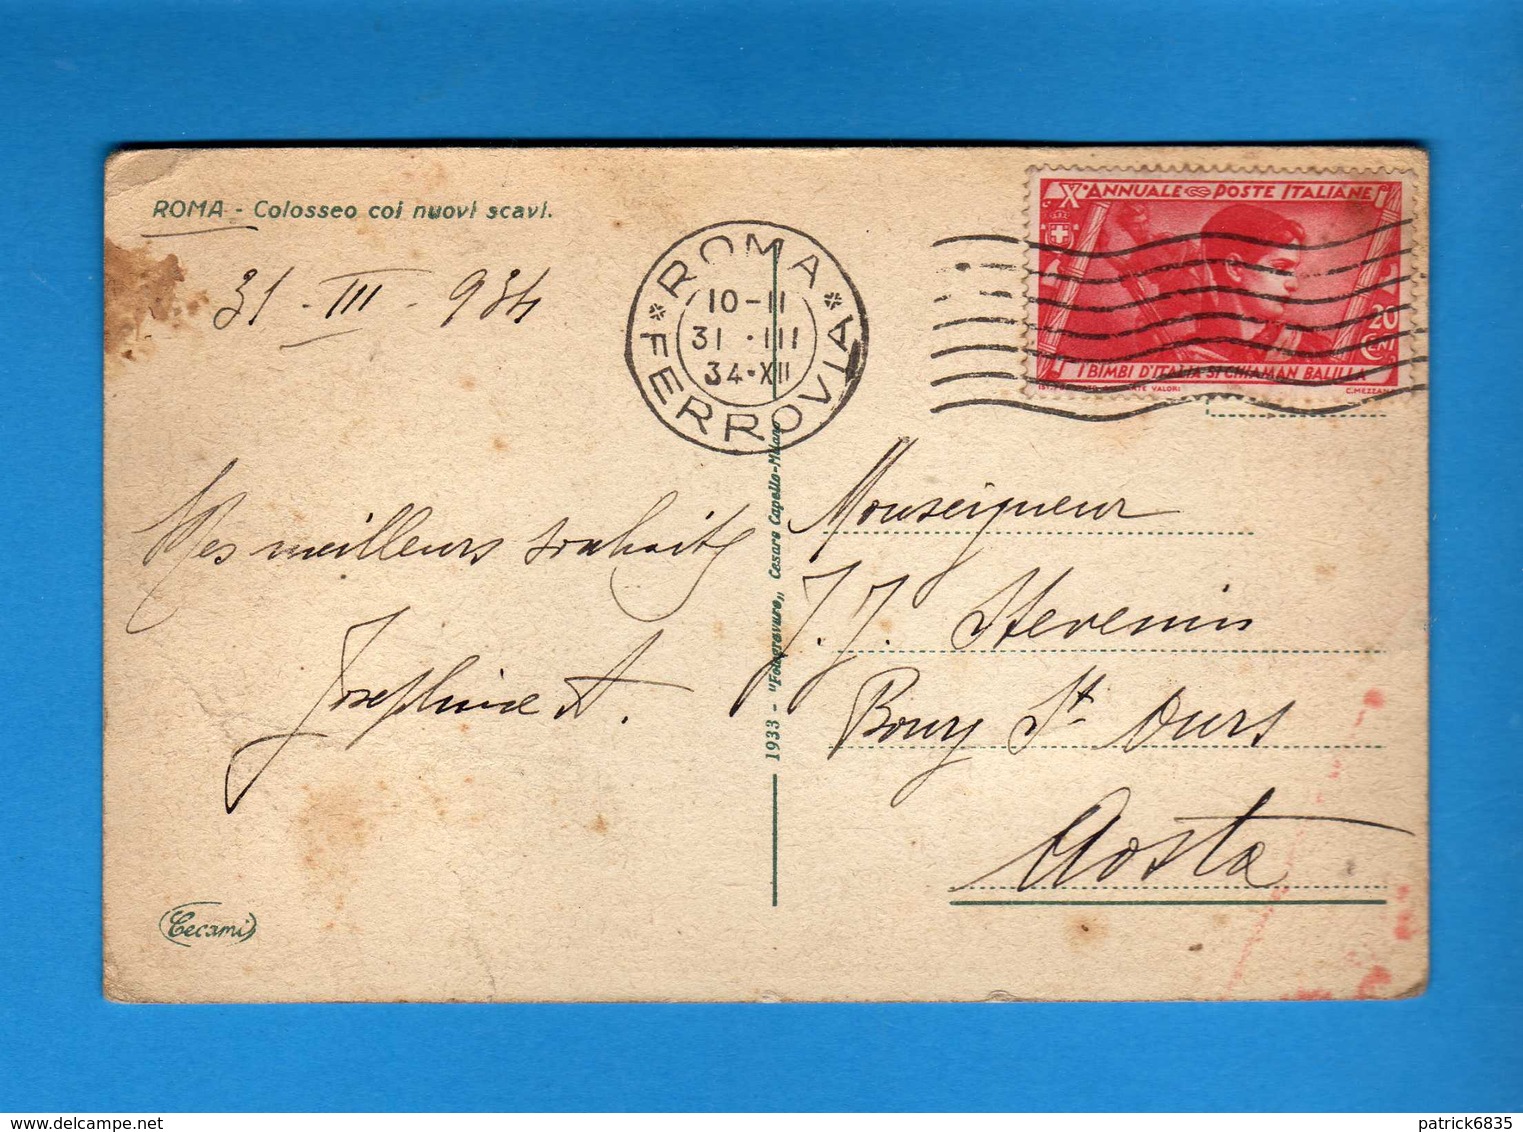 ROMA - Colosseo coi nuovi scavi.
31 - III - 934
ROMA
FERROVIA
10-11
31 · III
34·XII
X° ANNUALE POSTE ITALIANE
20
CMI
I BIMBI D'ITALIA·SI CHIAMAN BALILLA
VALORI
C. MEZZANA
Mes meilleurs souhaits
Josephine A.
Monseigneur
J. J. Stevenin
Bourg St Ours
Aosta
1933 - "Fotogravure" Cesare Capello-Milano
Cecami
patrick6835